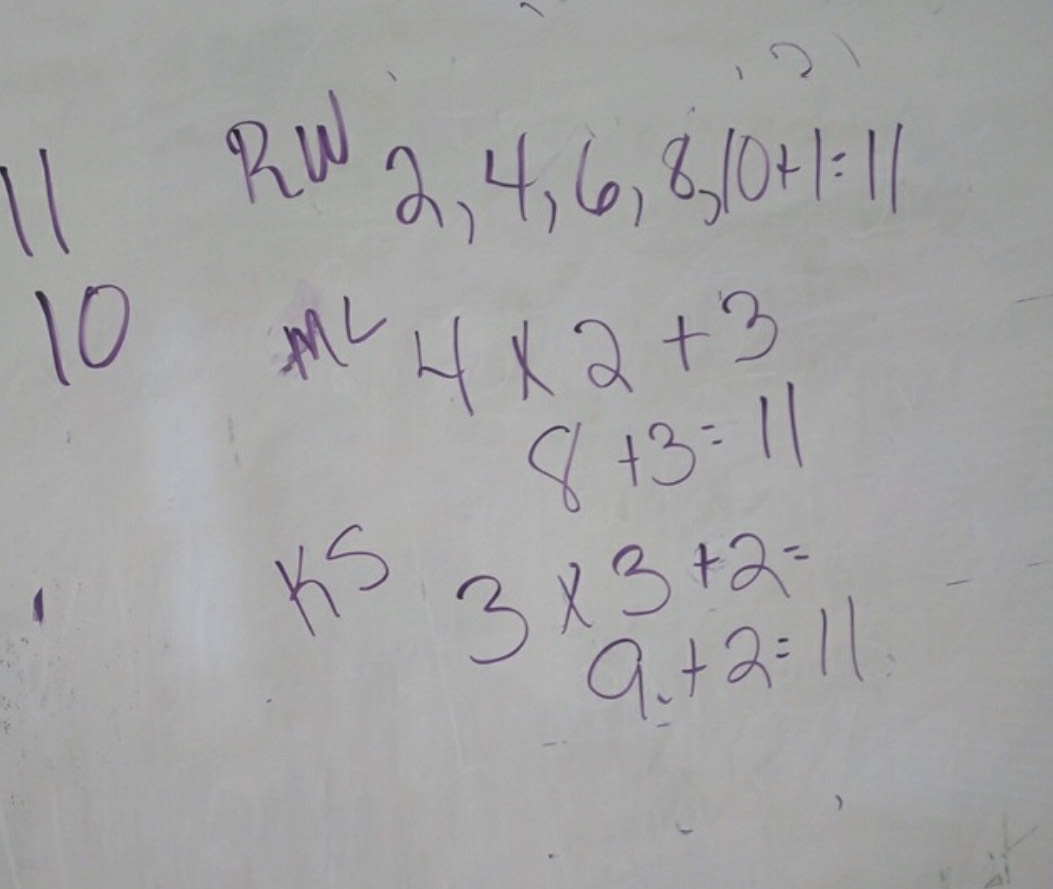 11
10
RW 2, 4, 6, 8, 10+1=11
ML 4 x 2 + 3
8 + 3 = 11
KS 3 x 3 + 2 =
9 + 2 = 11